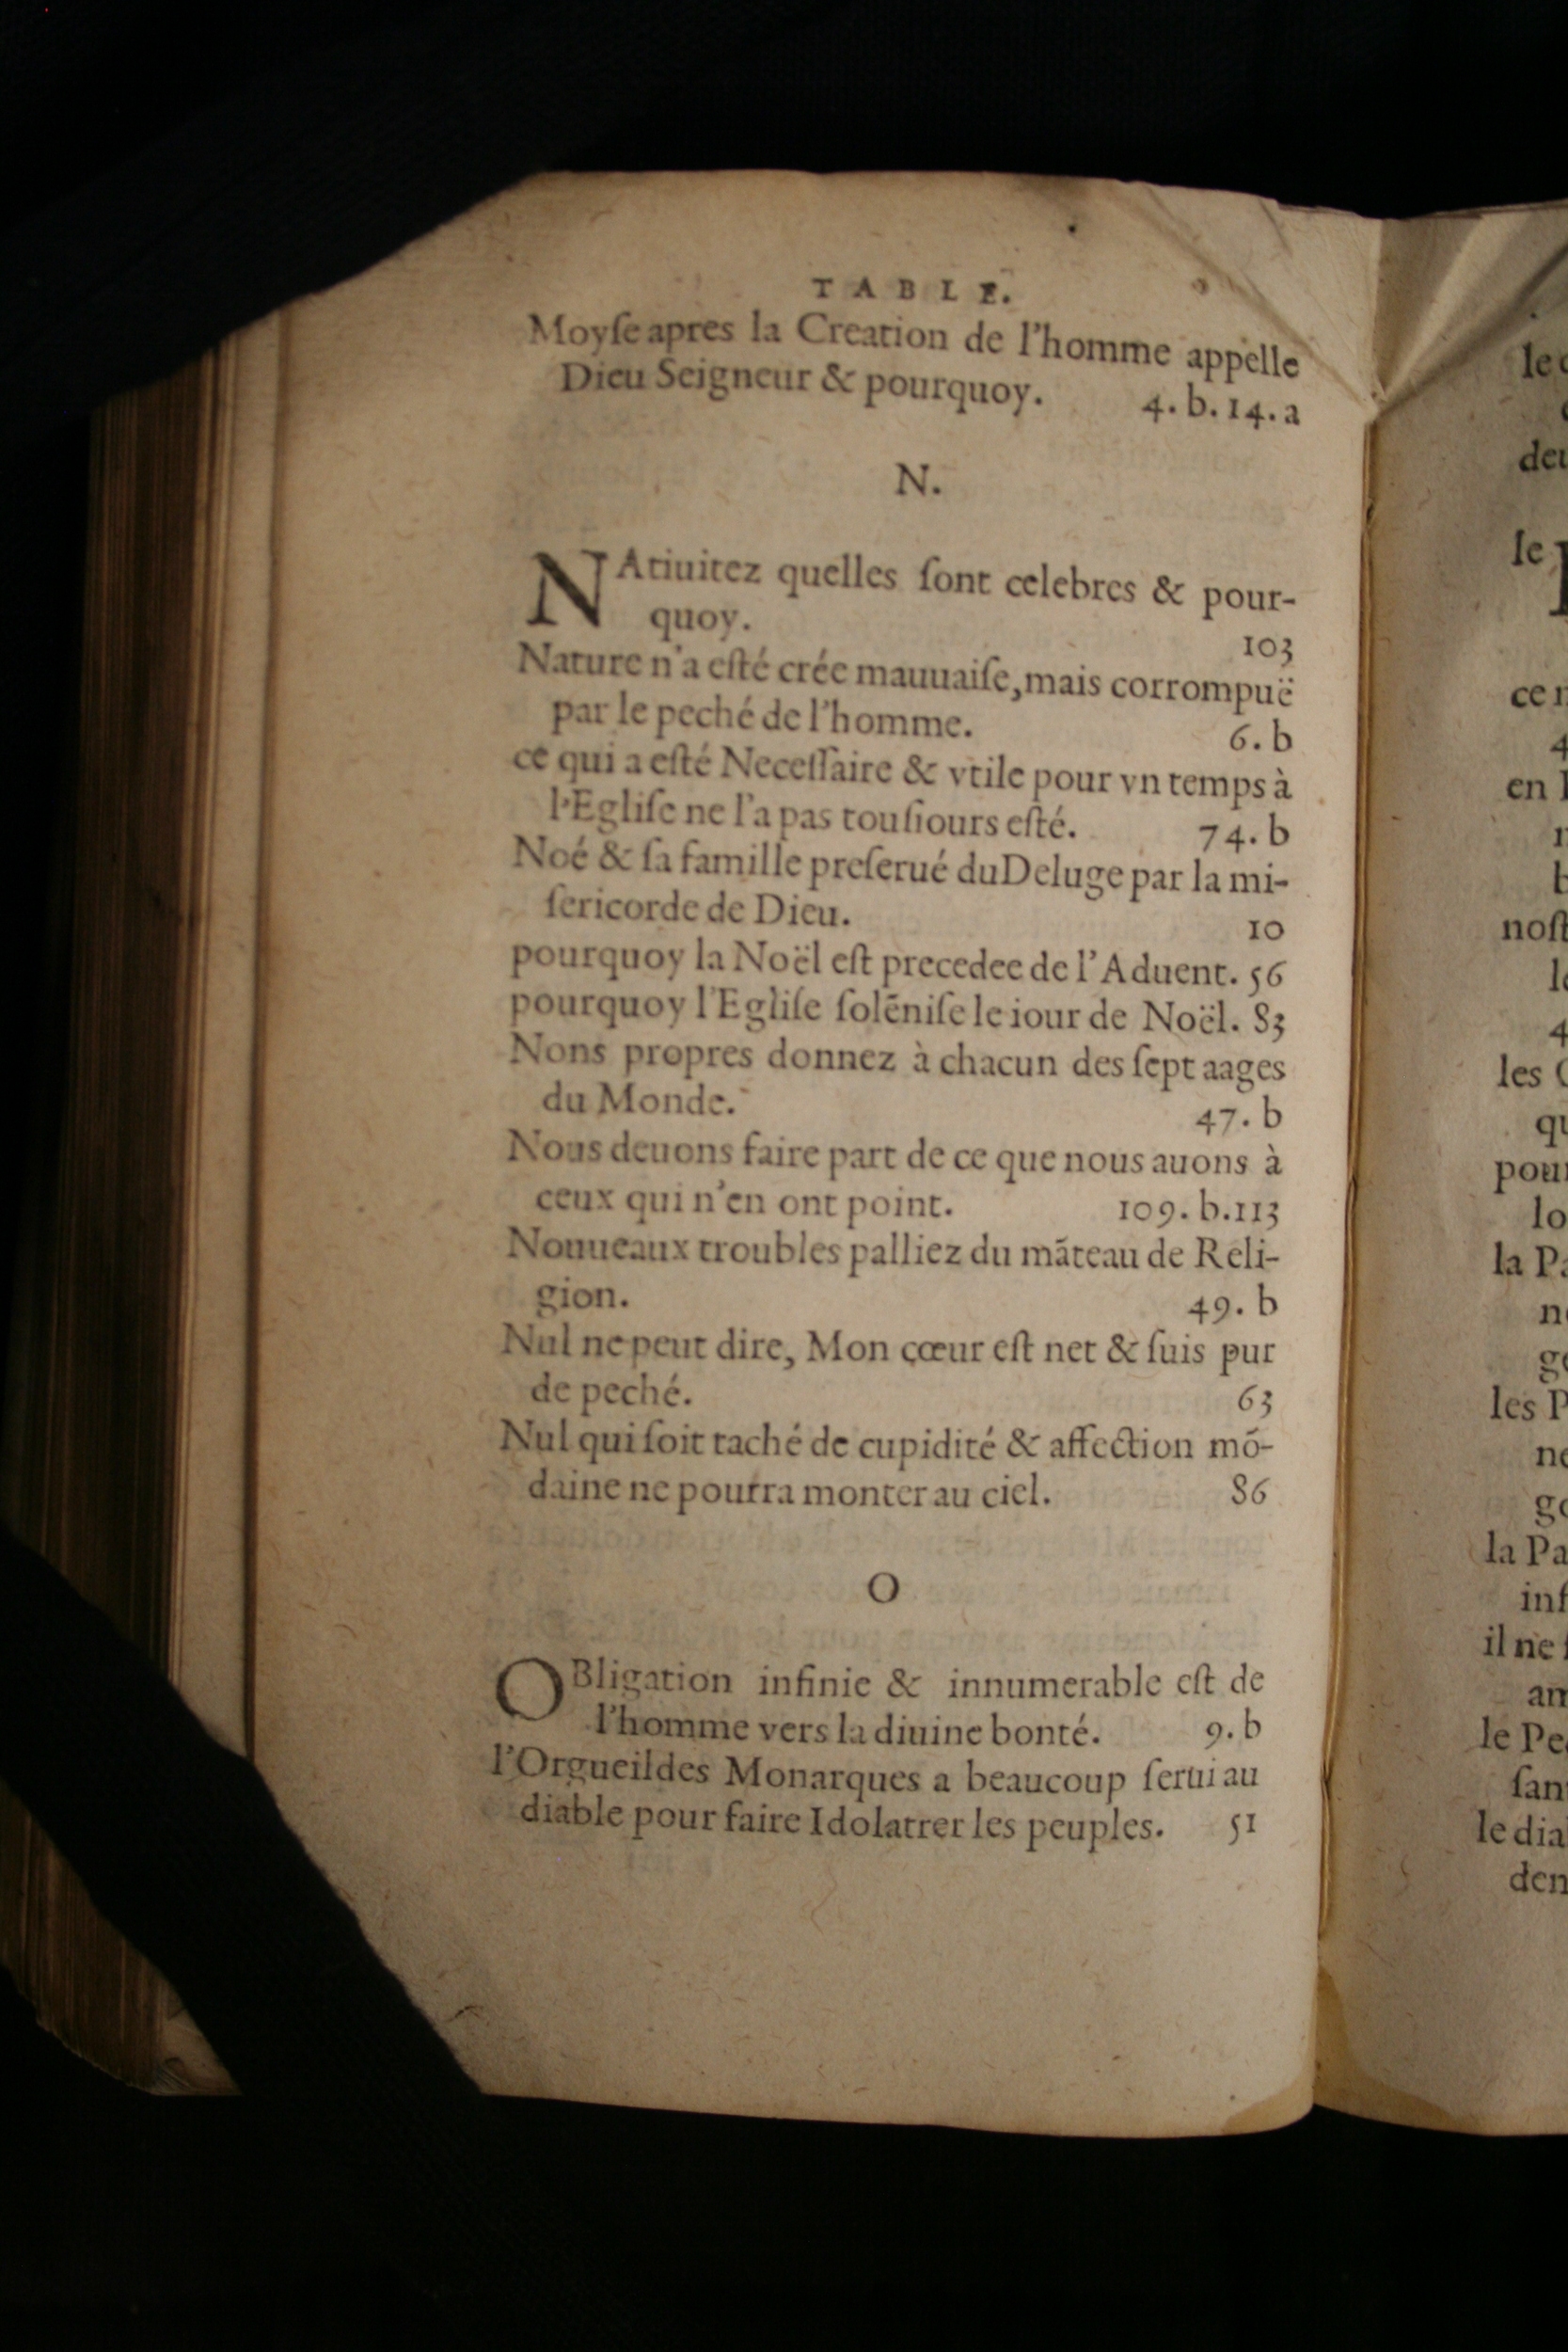 TABLE.
Moyſe apres la Creation de l'homme appelle
Dieu Seigneur & pourquoy. 4. b. 14. a
N.
NAtiuitez quelles ſont celebres & pour-
quoy. 103
Nature n'a eſté crée mauuaiſe, mais corrompuë
par le peché de l'homme. 6. b
ce qui a eſté Neceſſaire & vtile pour vn temps à
l'Egliſe ne l'a pas touſiours eſté. 74. b
Noé & ſa famille preſerué du Deluge par la mi-
ſericorde de Dieu. 10
pourquoy la Noël eſt precedee de l'Aduent. 56
pourquoy l'Egliſe ſolēniſe le iour de Noël. 83
Nons propres donnez à chacun des ſept aages
du Monde. 47. b
Nous deuons faire part de ce que nous auons à
ceux qui n'en ont point. 109. b. 113
Nouueaux troubles palliez du māteau de Reli-
gion. 49. b
Nul ne peut dire, Mon cœur eſt net & ſuis pur
de peché. 63
Nul qui ſoit taché de cupidité & affection mō-
daine ne pourra monter au ciel. 86
O
OBligation infinie & innumerable eſt de
l'homme vers la diuine bonté. 9. b
l'Orgueil des Monarques a beaucoup ſerui au
diable pour faire Idolatrer les peuples. 51
deu
le
ce
4
en
noſt
4
les
qu
pour
lo
la Pa
ne
ge
les P
ne
go
la Pa
inf
il ne
am
le Pe
ſan
le dia
den